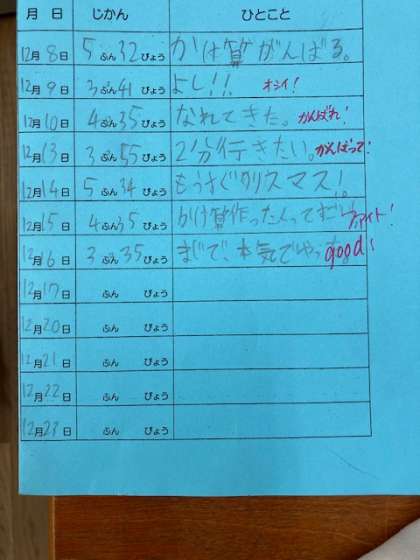 月 日 じかん ひとこと
12月8日 5ふん32びょう かけ算がんばる。
12月9日 3ふん41びょう よし!! オシイ!
12月10日 4ふん35びょう なれてきた。 がんばれ!
12月13日 3ふん55びょう 2分行きたい。 がんばって!
12月14日 5ふん34びょう もうすぐクリスマス!。
12月15日 4ふん35びょう かけ算作った人ってすごい ファイト!
12月16日 3ふん35びょう まじで、本気でやっ good!
12月17日 ふん びょう
12月20日 ふん びょう
12月21日 ふん びょう
12月22日 ふん びょう
12月23日 ふん びょう